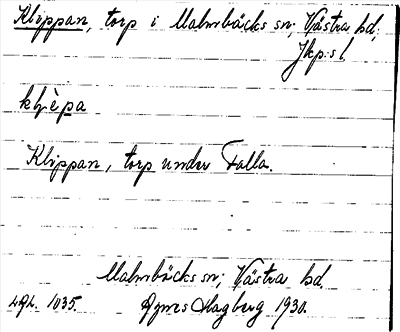 Klippan, torp i Malmbäcks sn; Västra hd,
Jkp:s l.
klìpa
Klippan, torp under Falla.
Malmbäcks sn; Västra hd
1035. Agnes Hagberg 1930.